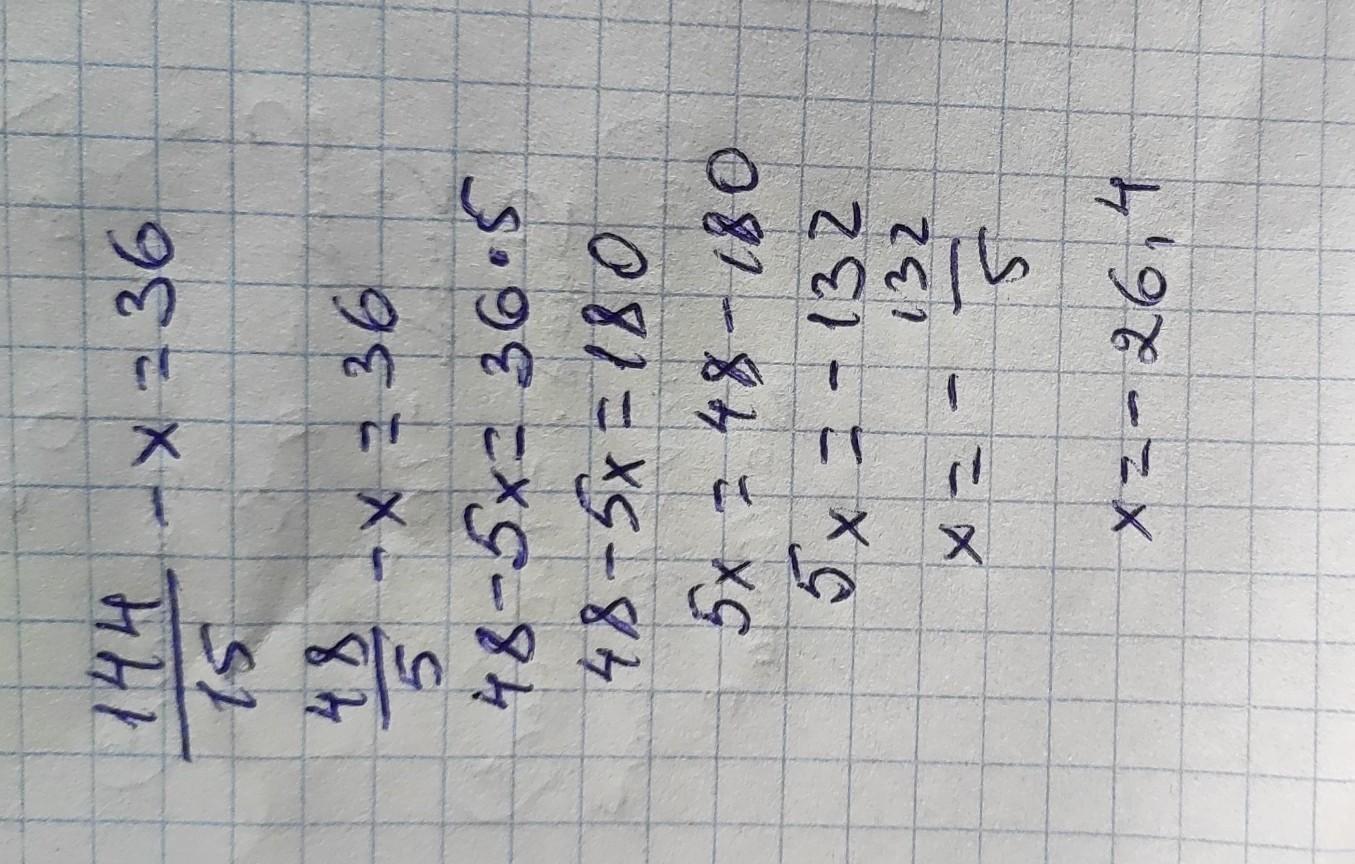 144/15 - x = 36
48/5 - x = 36
48 - 5x = 36 · 5
48 - 5x = 180
5x = 48 - 180
5x = - 132
x = - 132/5
x = - 26,4